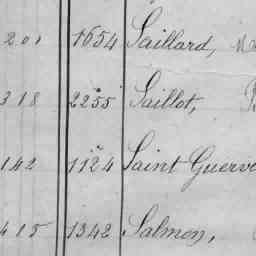 201 1654 Saillard,
318 2255 Saillot,
142 1124 Saint Guerv
415 1342 Salmon,